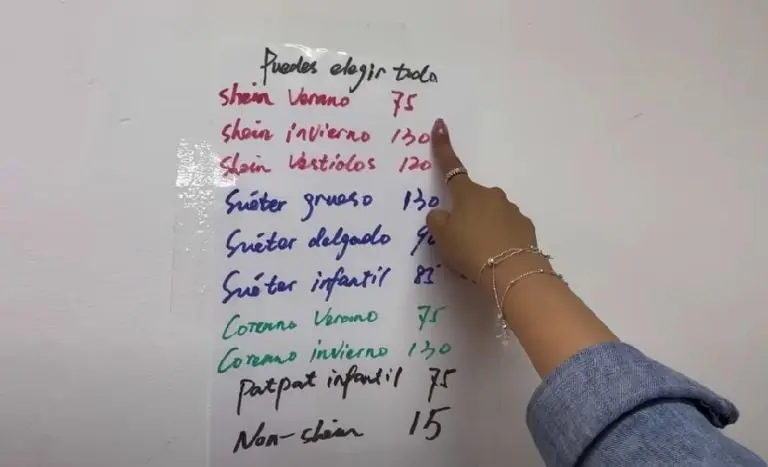 Puedes elegir todo
Shein Verano 75
Shein invierno 130
Shein Vestidos 120
Suéter grueso 130
Suéter delgado
Suéter infantil 85
Coreano Verano 75
Coreano invierno 130
Patpat infantil 75
Non-shein 15